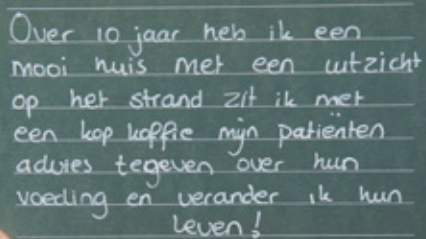 Over 10 jaar heb ik een
mooi huis met een uitzicht
op het strand zit ik met
een kop koffie mijn patiënten
advies tegeven over hun
voeding en verander ik hun
leven!